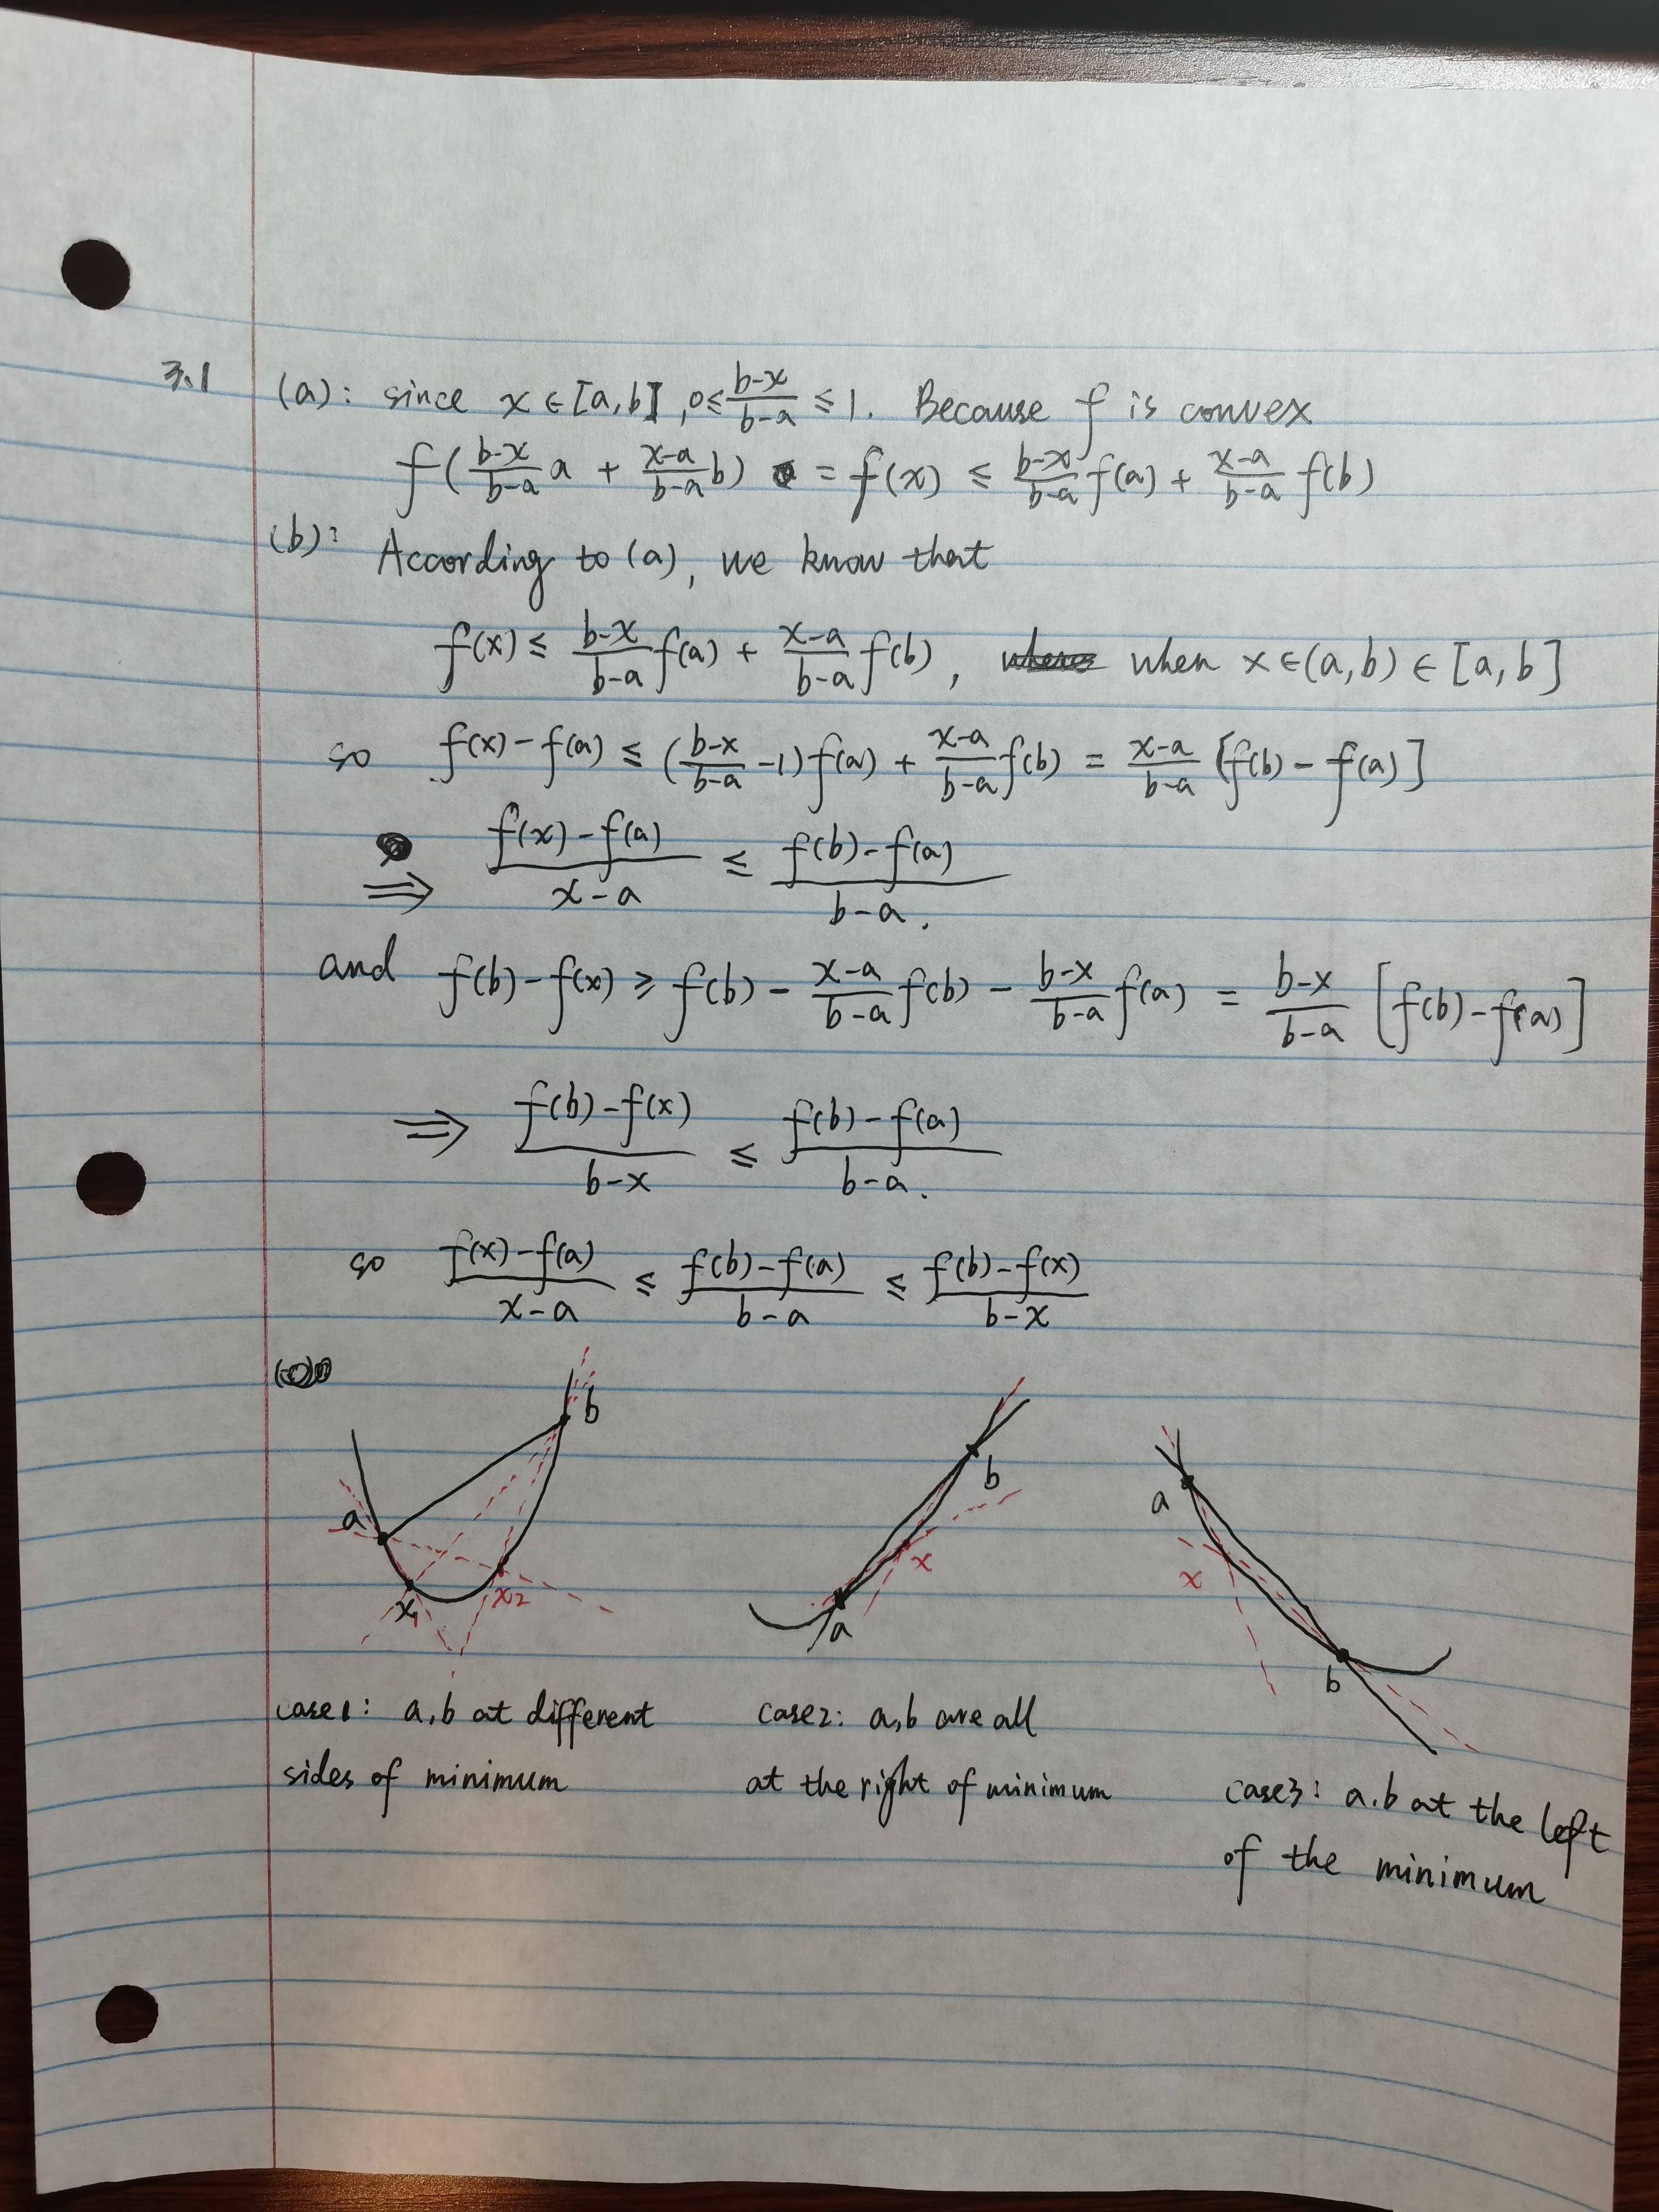 3.1 (a): since x ∈ [a,b], 0 ≤ \frac{b-x}{b-a} ≤ 1. Because f is convex
f(\frac{b-x}{b-a}a + \frac{x-a}{b-a}b) = f(x) ≤ \frac{b-x}{b-a}f(a) + \frac{x-a}{b-a}f(b)
(b): According to (a), we know that
f(x) ≤ \frac{b-x}{b-a}f(a) + \frac{x-a}{b-a}f(b), when x ∈ (a,b) ∈ [a,b]
so f(x) - f(a) ≤ (\frac{b-x}{b-a} - 1)f(a) + \frac{x-a}{b-a}f(b) = \frac{x-a}{b-a}[f(b) - f(a)]
⇒ \frac{f(x)-f(a)}{x-a} ≤ \frac{f(b)-f(a)}{b-a}.
and f(b) - f(x) ≥ f(b) - \frac{x-a}{b-a}f(b) - \frac{b-x}{b-a}f(a) = \frac{b-x}{b-a}[f(b) - f(a)]
⇒ \frac{f(b)-f(x)}{b-x} ≤ \frac{f(b)-f(a)}{b-a}.
so \frac{f(x)-f(a)}{x-a} ≤ \frac{f(b)-f(a)}{b-a} ≤ \frac{f(b)-f(x)}{b-x}
a x₁ x₂ b
a x b
a x b
case1: a,b at different
sides of minimum
case2: a,b are all
at the right of minimum
case3: a.b at the left
of the minimum